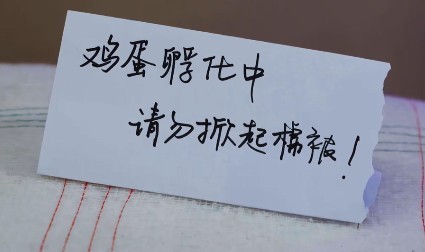 鸡蛋孵化中
请勿掀起棉被！